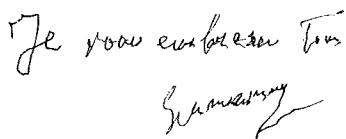 Je vous embrasse Tous